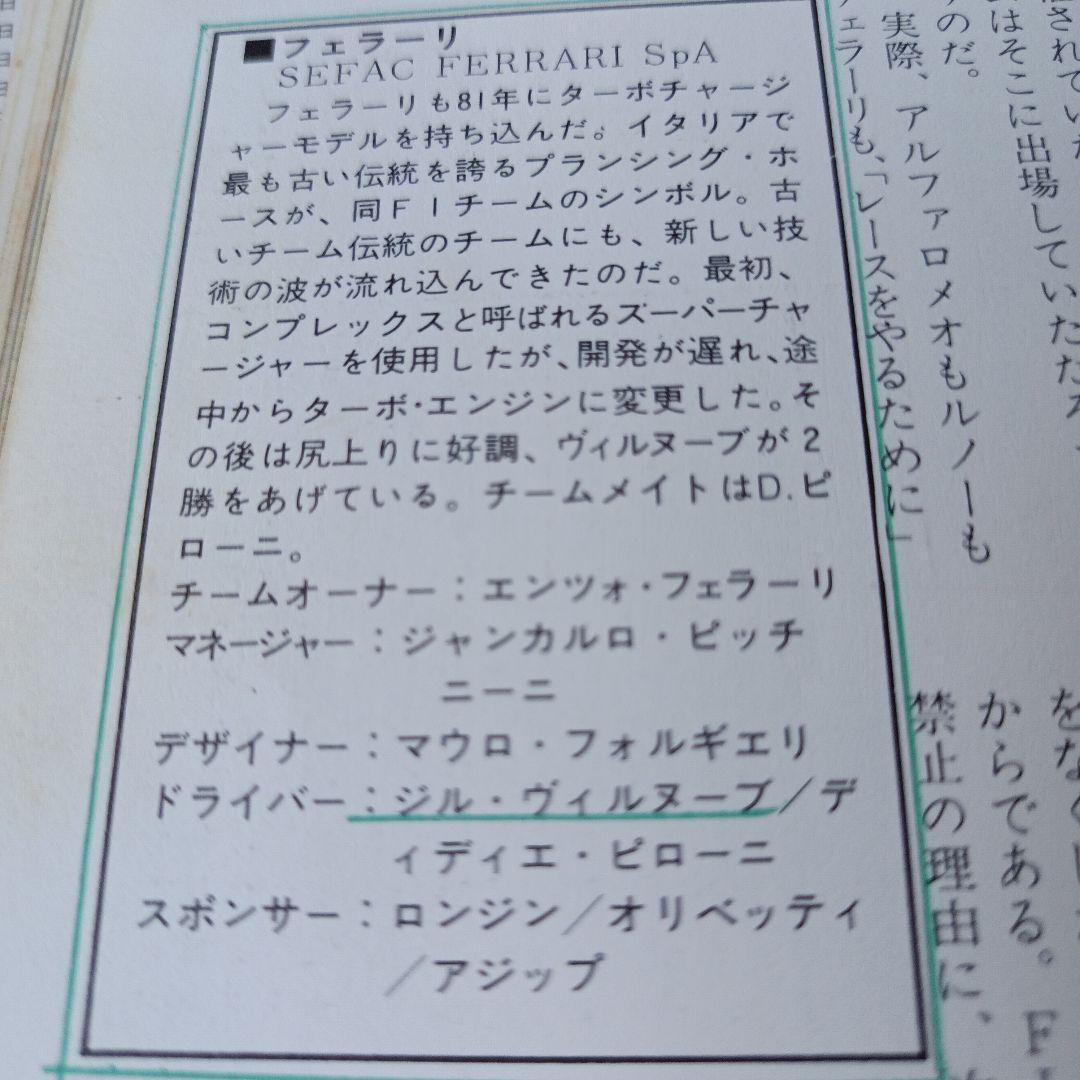 ■フェラーリ
SEFAC FERRARI SpA
フェラーリも81年にターボチャージ
ャーモデルを持ち込んだ。イタリアで
最も古い伝統を誇るプランシング・ホ
ースが、同F1チームのシンボル。古
いチーム伝統のチームにも、新しい技
術の波が流れ込んできたのだ。最初、
コンプレックスと呼ばれるスーパーチャ
ージャーを使用したが、開発が遅れ、途
中からターボ・エンジンに変更した。そ
の後は尻上りに好調、ヴィルヌーブが2
勝をあげている。チームメイトはD.ピ
ローニ。
チームオーナー：エンツォ・フェラーリ
マネージャー：ジャンカルロ・ピッチ
ニーニ
デザイナー：マウロ・フォルギエリ
ドライバー：ジル・ヴィルヌーブ／デ
ィディエ・ピローニ
スポンサー：ロンジン／オリベッティ
／アジップ
はそこに出場していた
のだ。
実際、アルファロメオもルノーも
フェラーリも、「レースをやるために」
をなくし
からである。F
禁止の理由に、